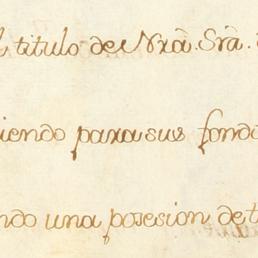 l titulo de Nrâ. Srâ.
iendo para sus fondo
ndo una posesion de t